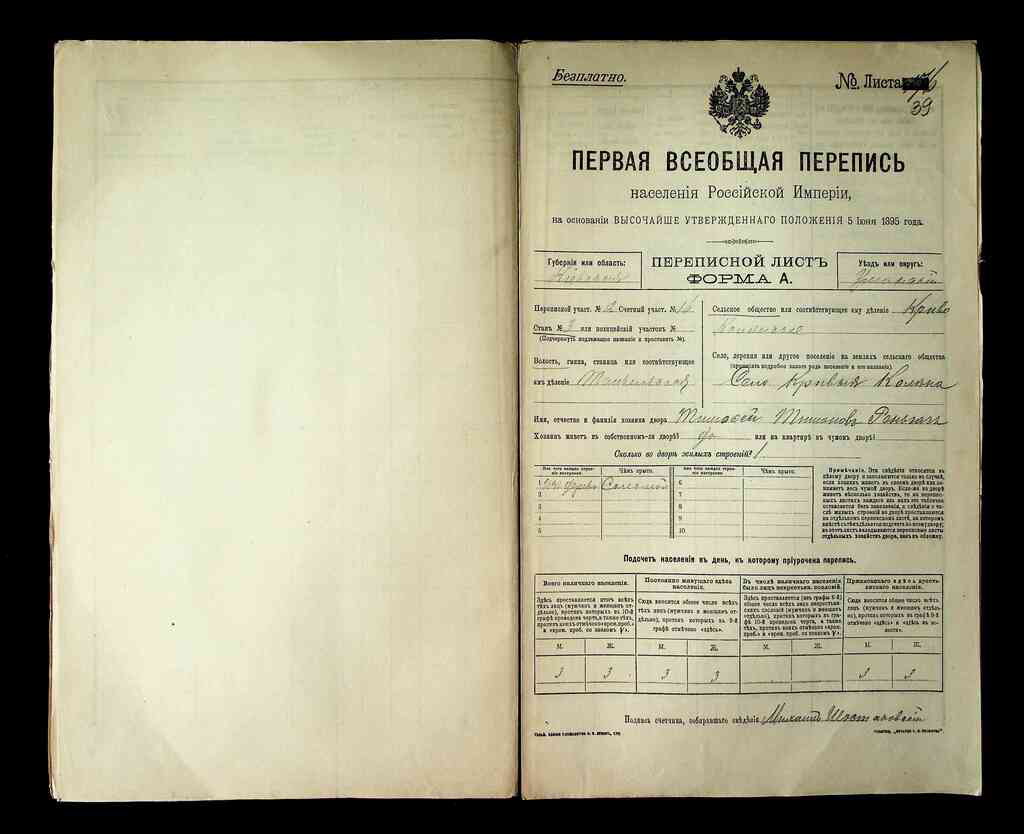 Безплатно.
№ Листа
39
ПЕРВАЯ ВСЕОБЩАЯ ПЕРЕПИСЬ
населенія Россійской Имперіи,
на основаніи ВЫСОЧАЙШЕ УТВЕРЖДЕННАГО ПОЛОЖЕНІЯ 5 Іюня 1895 года.
Губернія или область:
Кіевская
ПЕРЕПИСНОЙ ЛИСТЪ
ФОРМА А.
Уѣздъ или округъ:
Уманскій
Переписной участ. № 2 Счетный участ. № 16
Станъ № 3 или полицейскій участокъ №
(Подчеркнуть подлежащее названіе и проставить №).
Волость, гмина, станица или соотвѣтствующее
имъ дѣленіе
Сельское общество или соотвѣтствующее ему дѣленіе Криво
Село, деревня или другое поселеніе на земляхъ сельскаго общества
(прописать подробно какого рода поселеніе и его названіе).
Село Кривыя Колѣна
Имя, отчество и фамилія хозяина двора Тимофей
Хозяинъ живетъ въ собственномъ-ли дворѣ? да или на квартирѣ въ чужомъ дворѣ?
Сколько во дворѣ жилыхъ строеній? 1
Изъ чего каждое строеніе построено.
Чѣмъ крыто.
Изъ чего каждое строеніе построено.
Чѣмъ крыто.
1 Изъ дерева Соломой 6
2 7
3 8
4 9
5 10
Примѣчаніе. Эти свѣдѣнія относятся къ
цѣлому двору и заполняются только въ случаѣ,
если хозяинъ живетъ въ своемъ дворѣ или за-
нимаетъ весь чужой дворъ. Если-же во дворѣ
живетъ нѣсколько хозяйствъ, то на перепис-
ныхъ листахъ каждаго изъ нихъ эта табличка
оставляется безъ заполненія, а свѣдѣнія о чи-
слѣ жилыхъ строеній во дворѣ проставляются
на отдѣльномъ переписномъ листѣ, на которомъ
вмѣстѣ съ тѣмъ дѣлается подсчетъ по всему двору;
въ этотъ листъ вкладываются переписные листы
отдѣльныхъ хозяйствъ двора, какъ въ обложку.
Подсчетъ населенія въ день, къ которому пріурочена перепись.
Всего наличнаго населенія.
Постоянно живущаго здѣсь населенія.
Въ числѣ наличнаго населенія было лицъ некрестьянск. сословій.
Приписаннаго здѣсь крестьянскаго населенія.
Здѣсь проставляется итогъ всѣхъ
тѣхъ лицъ (мужчинъ и женщинъ от-
дѣльно), противъ которыхъ въ 10-й
графѣ проведена черта, а также тѣхъ,
противъ коихъ отмѣчено «врем. преб.»
Сюда вносится общее число всѣхъ
тѣхъ лицъ (мужчинъ и женщинъ от-
дѣльно), противъ которыхъ въ 9-й
графѣ отмѣчено «здѣсь».
Здѣсь проставляется (изъ графы 6-й)
общее число всѣхъ лицъ некрестьян-
скихъ сословій (мужчинъ и женщинъ
отдѣльно), противъ которыхъ въ гра-
фѣ 10 проведена черта, а также
тѣхъ, противъ коихъ отмѣчено «врем.
Сюда вносится общее число всѣхъ
лицъ (мужчинъ и женщинъ отдѣль-
но), противъ которыхъ въ графѣ 8-й
отмѣчено «здѣсь» и «здѣсь въ во-
лости».
М. Ж. М. Ж. М. Ж. М. Ж.
3 3 3 3 3 3
Подпись счетчика, собиравшаго свѣдѣнія Михаилъ